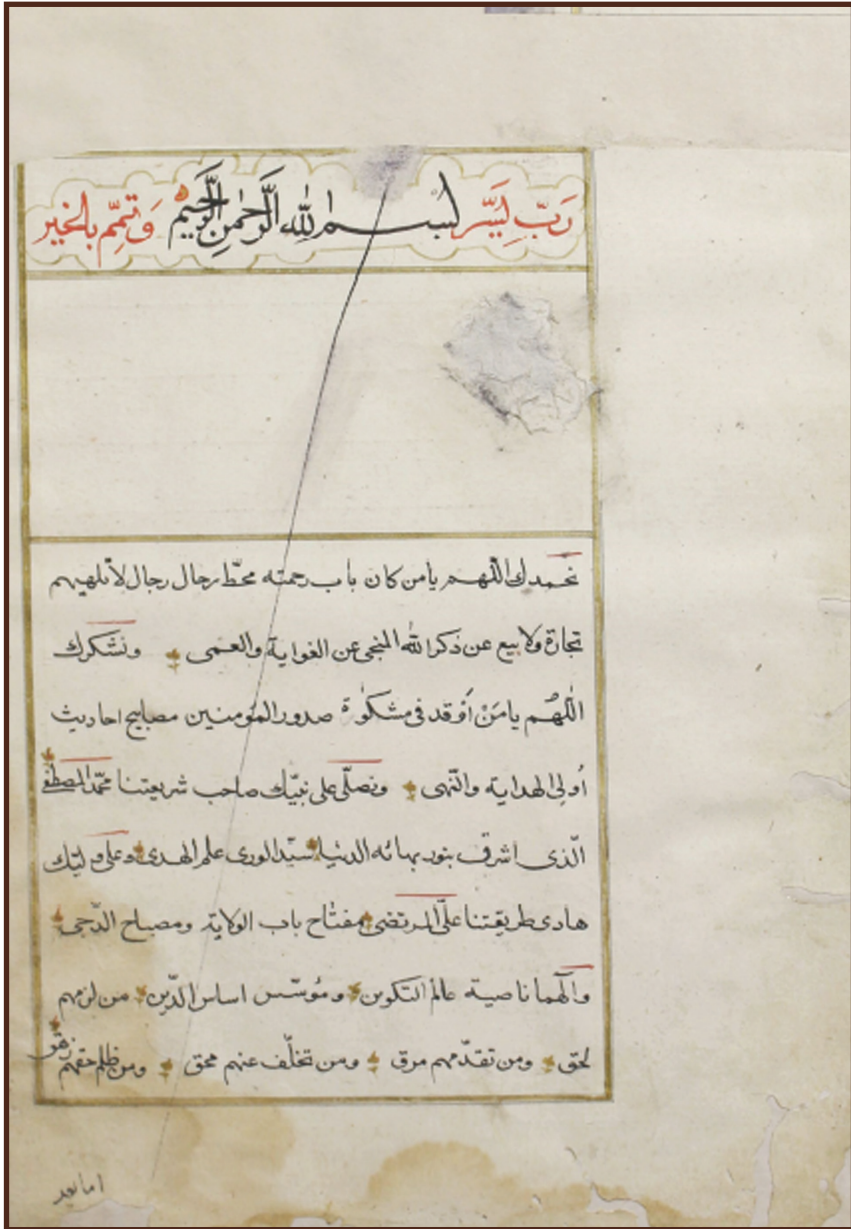 رَبِّ يَسِّر بسم الله الرَّحمٰنِ الرَّحِيم وَتمّم بالخير
نحمدك اللهم يا من كان باب رحمته محطّ رحال رجال لا تلهيهم
تجارة ولا بيع عن ذكر الله المنجى عن الغواية والعمى ونشكرك
اللّٰهُم يا مَنْ اَوْقد فى مشكٰوة صدور المؤمنين مصابيح احاديث
اُولِى الهداية والنّهى ونصلّى على نبيّك صاحب شريعتنا محمّد المصطفى
الّذى اشرق بنور بهائه الدنيا سيّد الورى علم الهدى وعلى وليّك
هادى طريقتنا علىّ المرتضى مفتاح باب الولاية ومصباح الدّجى
وآلهما ناصية عالم التكوين ومؤسّس اساس الدّين من لزمهم
لحق ومن تقدّمهم مرق ومن تخلّف عنهم محق ومن ظلم حقهم زهق
اما بعد